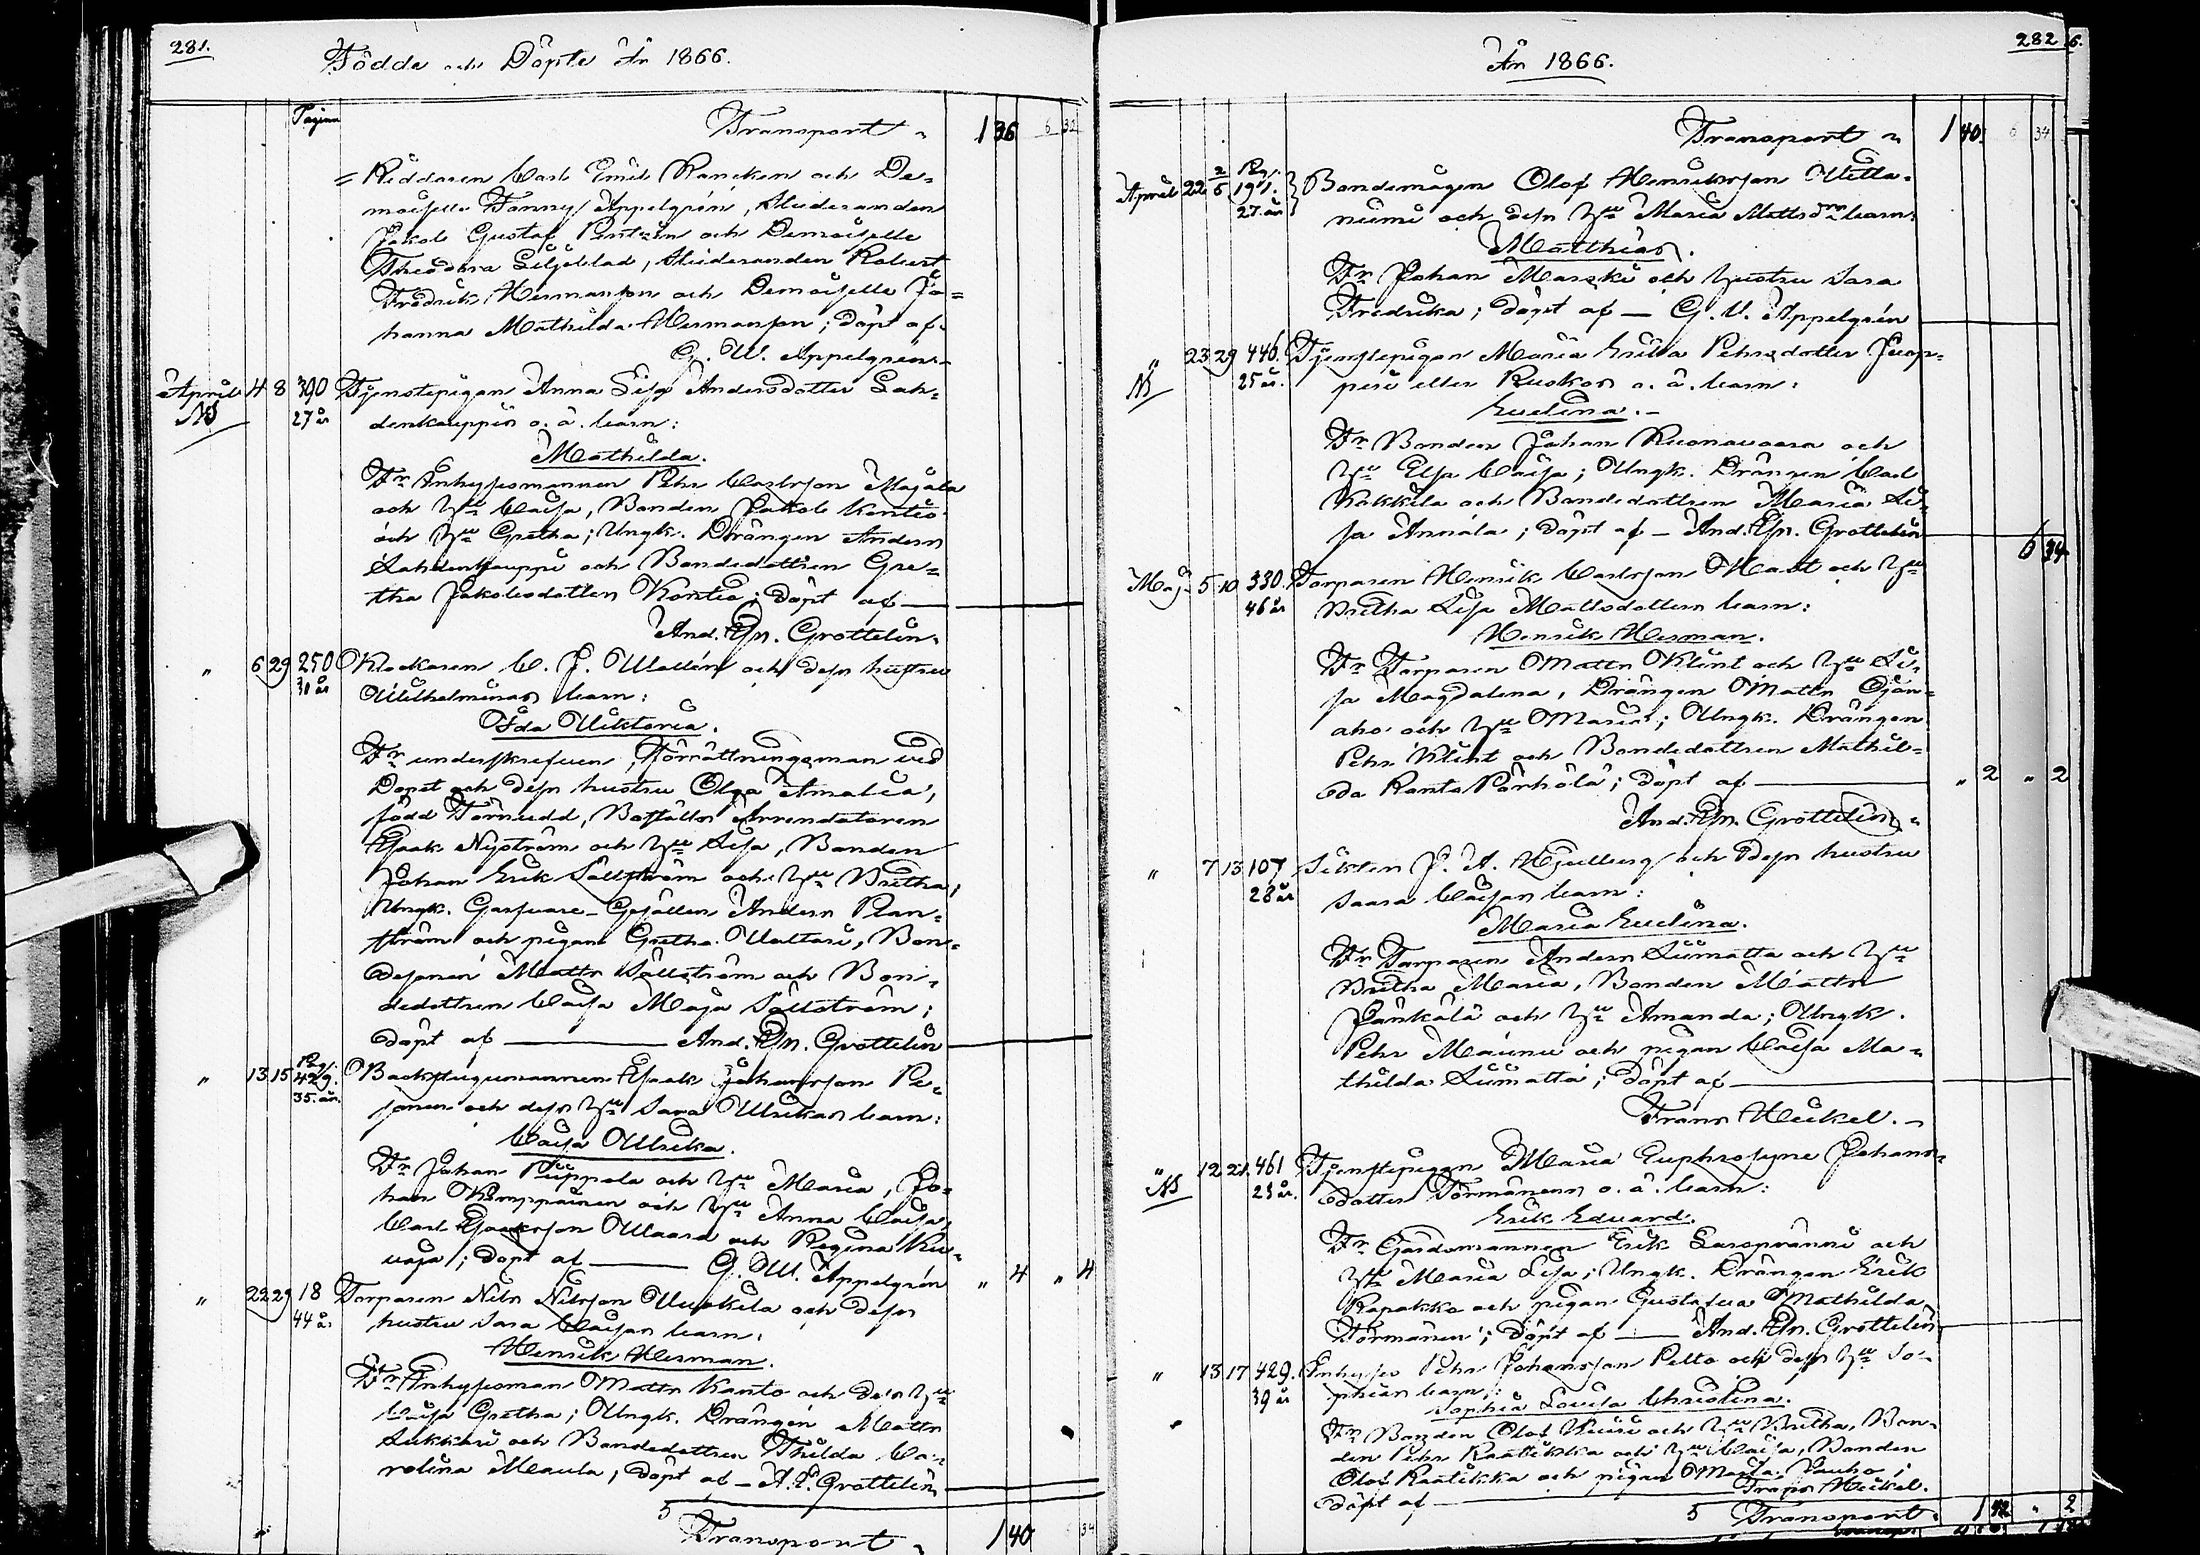 281.
Födde och Döpte År 1866.
Pagina
Transport 136 6 32
= Riddaren Carl Emil Rancken och De-
moiselle Fanny Appelgrén, Studeranden
Jakob Gustaf Pentzin och Demoiselle
Theodora Liljeblad, Studeranden Robert
Fredrik Hermanson och Demoiselle Jo-
hanna Mathilda Hermanson; döpt af
G. W. Appelgren
April 4 8 390 Tjenstepigan Anna Lisa Andersdotter Lah-
NB 27 år denkauppis o. ä. barn:
Mathilda.
Fr Inhysesmannen Pehr Carlsson Majala
och Hu Caisa, Bonden Jakob Kontio
och Hu Gretha; Ungk. Drängen Anders
Lahdenkauppi och Bondedottren Gre-
tha Jakobsdotter Kontio; döpt af
And. Ehn. Grottelin.
" 6 29 250 Klockaren C. J. Wallén och dess hustru
31 år Wilhelminas barn:
Ida Wiktoria.
Fr underskrefven, Förrättningsman vid
Dopet och dess hustru Olga Amalia,
född Törnudd, Boställs Arrendatoren
Isaak Nyström och Hu Lisa, Bonden
Johan Erik Sällström och Hu Britha;
Ungk. Garfvare-Gesällen Anders Plan-
ström och pigan Gretha Waltari, Bon-
desonen Matts Sällström och Bon-
dedottren Caisa Maja Sällström;
döpt af — And. Ehn. Grottelin
" 13 15 Pag. 429. Backstugumannen Isaak Johansson Pe-
35. år. sonen och dess Hu Sara Ulrikas barn:
Caisa Ulrika.
Fr Johan Piippola och Hu Maria, Jo-
han Kamppainen och Hu Anna Caisa,
Carl Isaksson Waara och Regina Ku-
vaja; döpt af — G. W. Appelgrén " 4 " 4
" 22 29 18 Torparen Nils Nilsson Wuokila och dess
44 å. hustru Sara Caisas barn:
Henrik Herman.
Fr Inhysesman Matts Kanto och dess Hu
Caisa Gretha; Ungk. Drängen Matts
Sukkari och Bondedottren Thilda Ca-
rolina Maula, döpt af — A. E. Grottelin
5
Transport 140 34
282
År 1866.
Transport 140 6 34
April 22 2/5 Pag. 191. Bondemågen Olof Henriksson Witta-
27. år niemi och dess Hu Maria Mattsdrs barn:
Matthias.
Fr Johan Marski och hustru Sara
Fredrika; döpt af — G. W. Appelgrén
" 23 29 446. Tjenstepigan Maria Erika Pehrsdotter Juop-
NB 25 år. peri eller Ruokas o. ä. barn:
Evelina.
Fr Bonden Johan Ruonavaara och
Hu Elsa Caisa; Ungk. Drängen Carl
Kokkila och Bondedottren Maria Li-
sa Annala; döpt af — And. Ehn. Grottelin
6 34
Maj 5 10 330. Torparen Henrik Carlsson Mast och Hu
46 år Britha Lisa Mattsdotters barn:
Henrik Herman.
Fr Torparen Matts Klint och Hu Li-
sa Magdalena, Drängen Matts Ojan-
aho och Hu Maria; Ungk. Drängen
Pehr Klint och Bondedottren Mathil-
da Ranta Pörhölä; döpt af — " 2 " 2
And. Ehn. Grottelin
" 7 13 107 Sikten J. A. Kjellberg och dess hustru
28 år Saara Caisas barn:
Maria Evelina.
Fr Torparen Anders Liimatta och Hu
Britha Maria, Bonden Matts
Jänkälä och Hu Amanda; Ungk.
Pehr Maunu och pigan Caisa Ma-
thilda Liimatta; döpt af —
Frans Heikel.
" 12 21 461 Tjenstepigan Maria Euphrosyne Johans-
NB 23 år. dotter Törmänens o. ä. barn:
Erik Edvard.
Fr Gårdsmannen Erik Larspränni och
Hu Maria Lisa; Ungk. Drängen Erik
Rapakko och pigan Gustafva Mathilda
Törmänen; döpt af — And. Ehn. Grottelin
" 13 17 429. Inhyses Pehr Johansson Pelto och dess Hu So-
39 år phias barn:
Sophia Lovisa Christina.
Fr Bonden Olof Kiuri och Hu Britha, Bon-
den Pehr Raatikka och Hu Caisa, Bonden
Olof Raatikka och pigan Maria Pauho;
döpt af — Frans Heikel.
5 Transport 142 " 2